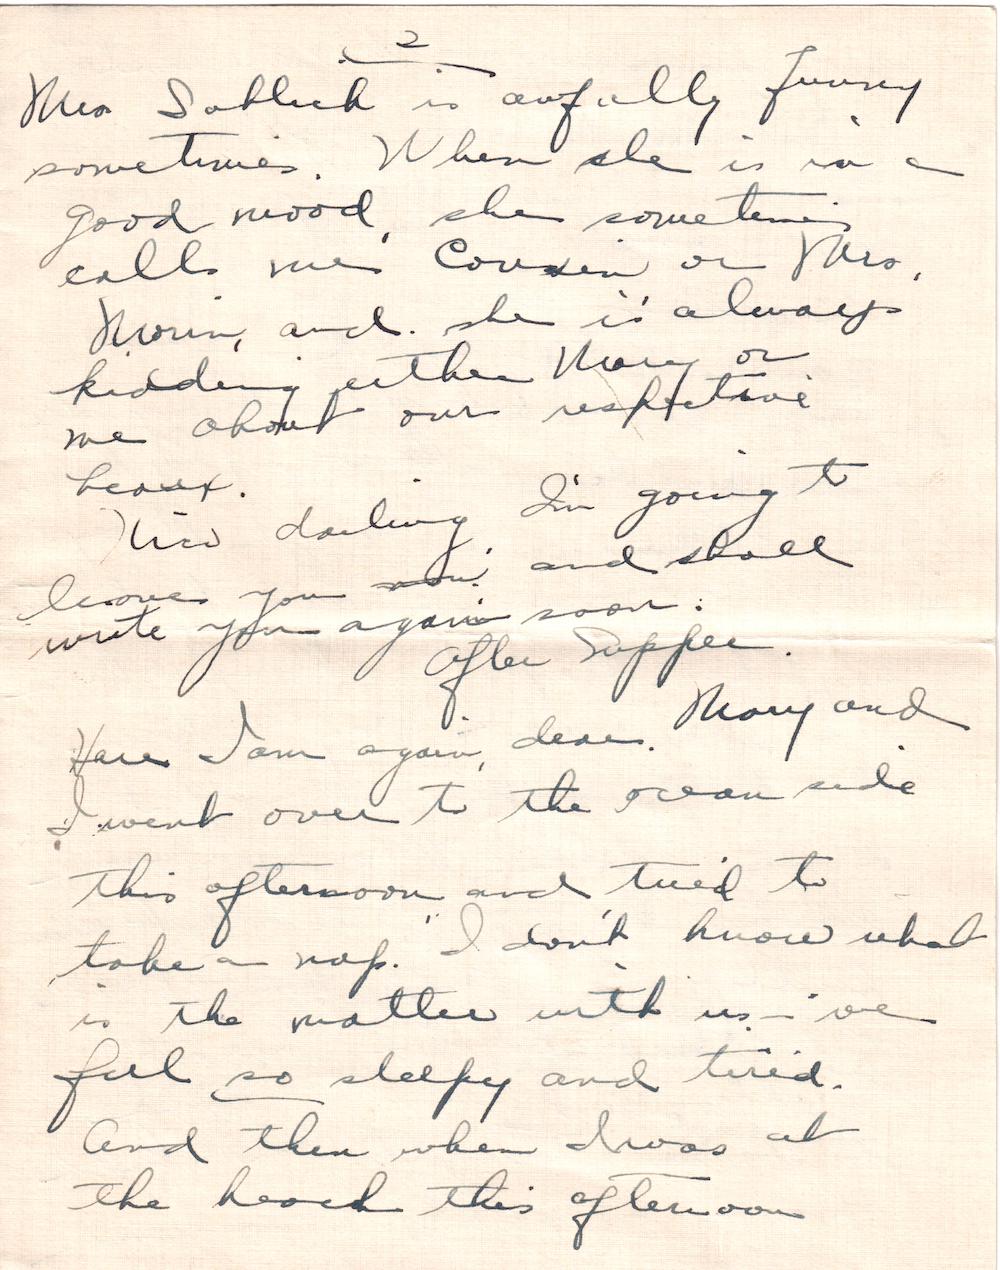 2
Mrs is awfully funny
sometimes. When she is in a
good mood, she sometimes
calls me Cousin or Mrs.
Morin, and she is always
kidding either Mary or
me about our respective
beaux.
darling, I'm going to
leave you now and shall
write you again soon.
After Supper.
Here I am again, dear. Mary and
I went over to the ocean side
this afternoon and tried to
take a nap. I don't know what
is the matter with us - we
feel so sleepy and tired.
And then when I was at
the beach this afternoon